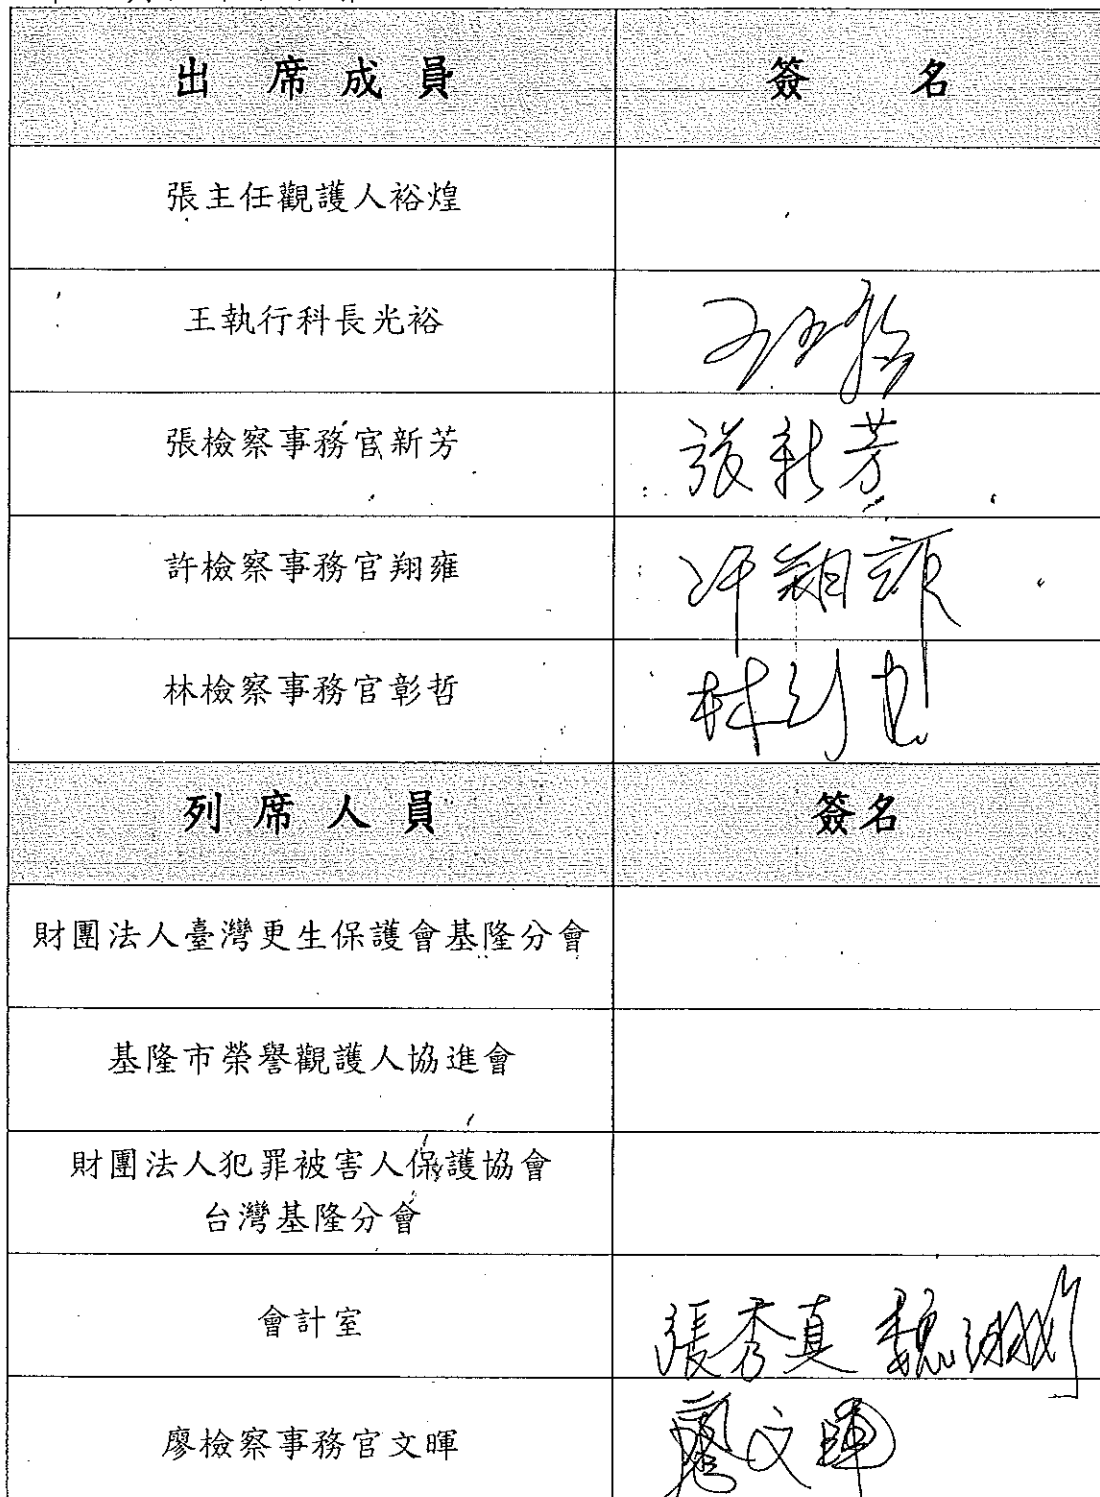 出席成員 簽名
張主任觀護人裕煌
王執行科長光裕
張檢察事務官新芳 張新芳
許檢察事務官翔雍 許翔雍
林檢察事務官彰哲 林彰哲
列席人員 簽名
財團法人臺灣更生保護會基隆分會
基隆市榮譽觀護人協進會
財團法人犯罪被害人保護協會
台灣基隆分會
會計室 張秀真 魏
廖檢察事務官文暉 廖文暉